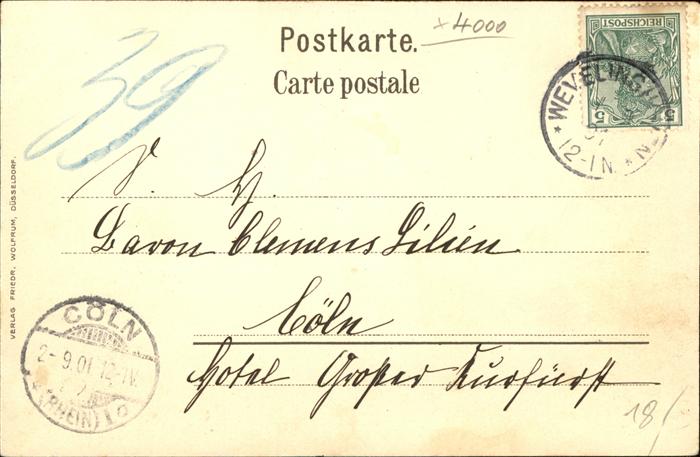 39
Postkarte.
×4000
Carte postale
REICHSPOST
5 5
* WEVELINGHOVEN *
01
12-1N.
S. H.
Baron Clemens Lilien
Cöln
Hotel Großer Kurfürst
CÖLN
2-9.01 12-1N.
(RHEIN) 1
VERLAG FRIEDR. WOLFRUM, DÜSSELDORF.
18/